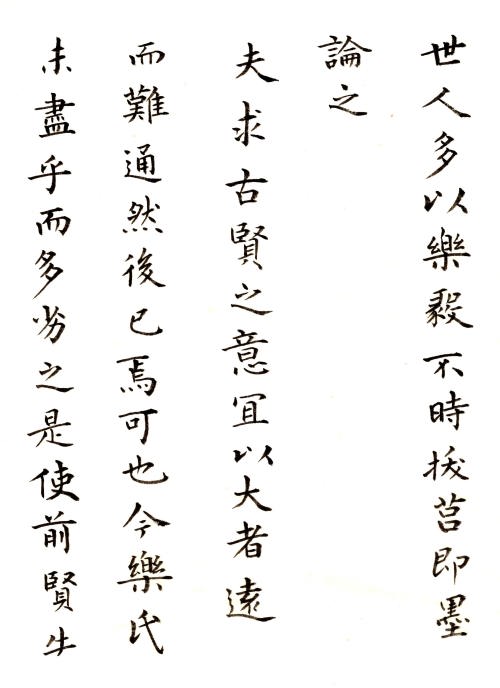 世人多以樂毅不時拔莒即墨
論之
夫求古賢之意宜以大者遠
而難通然後已焉可也今樂氏
未盡乎而多劣之是使前賢失